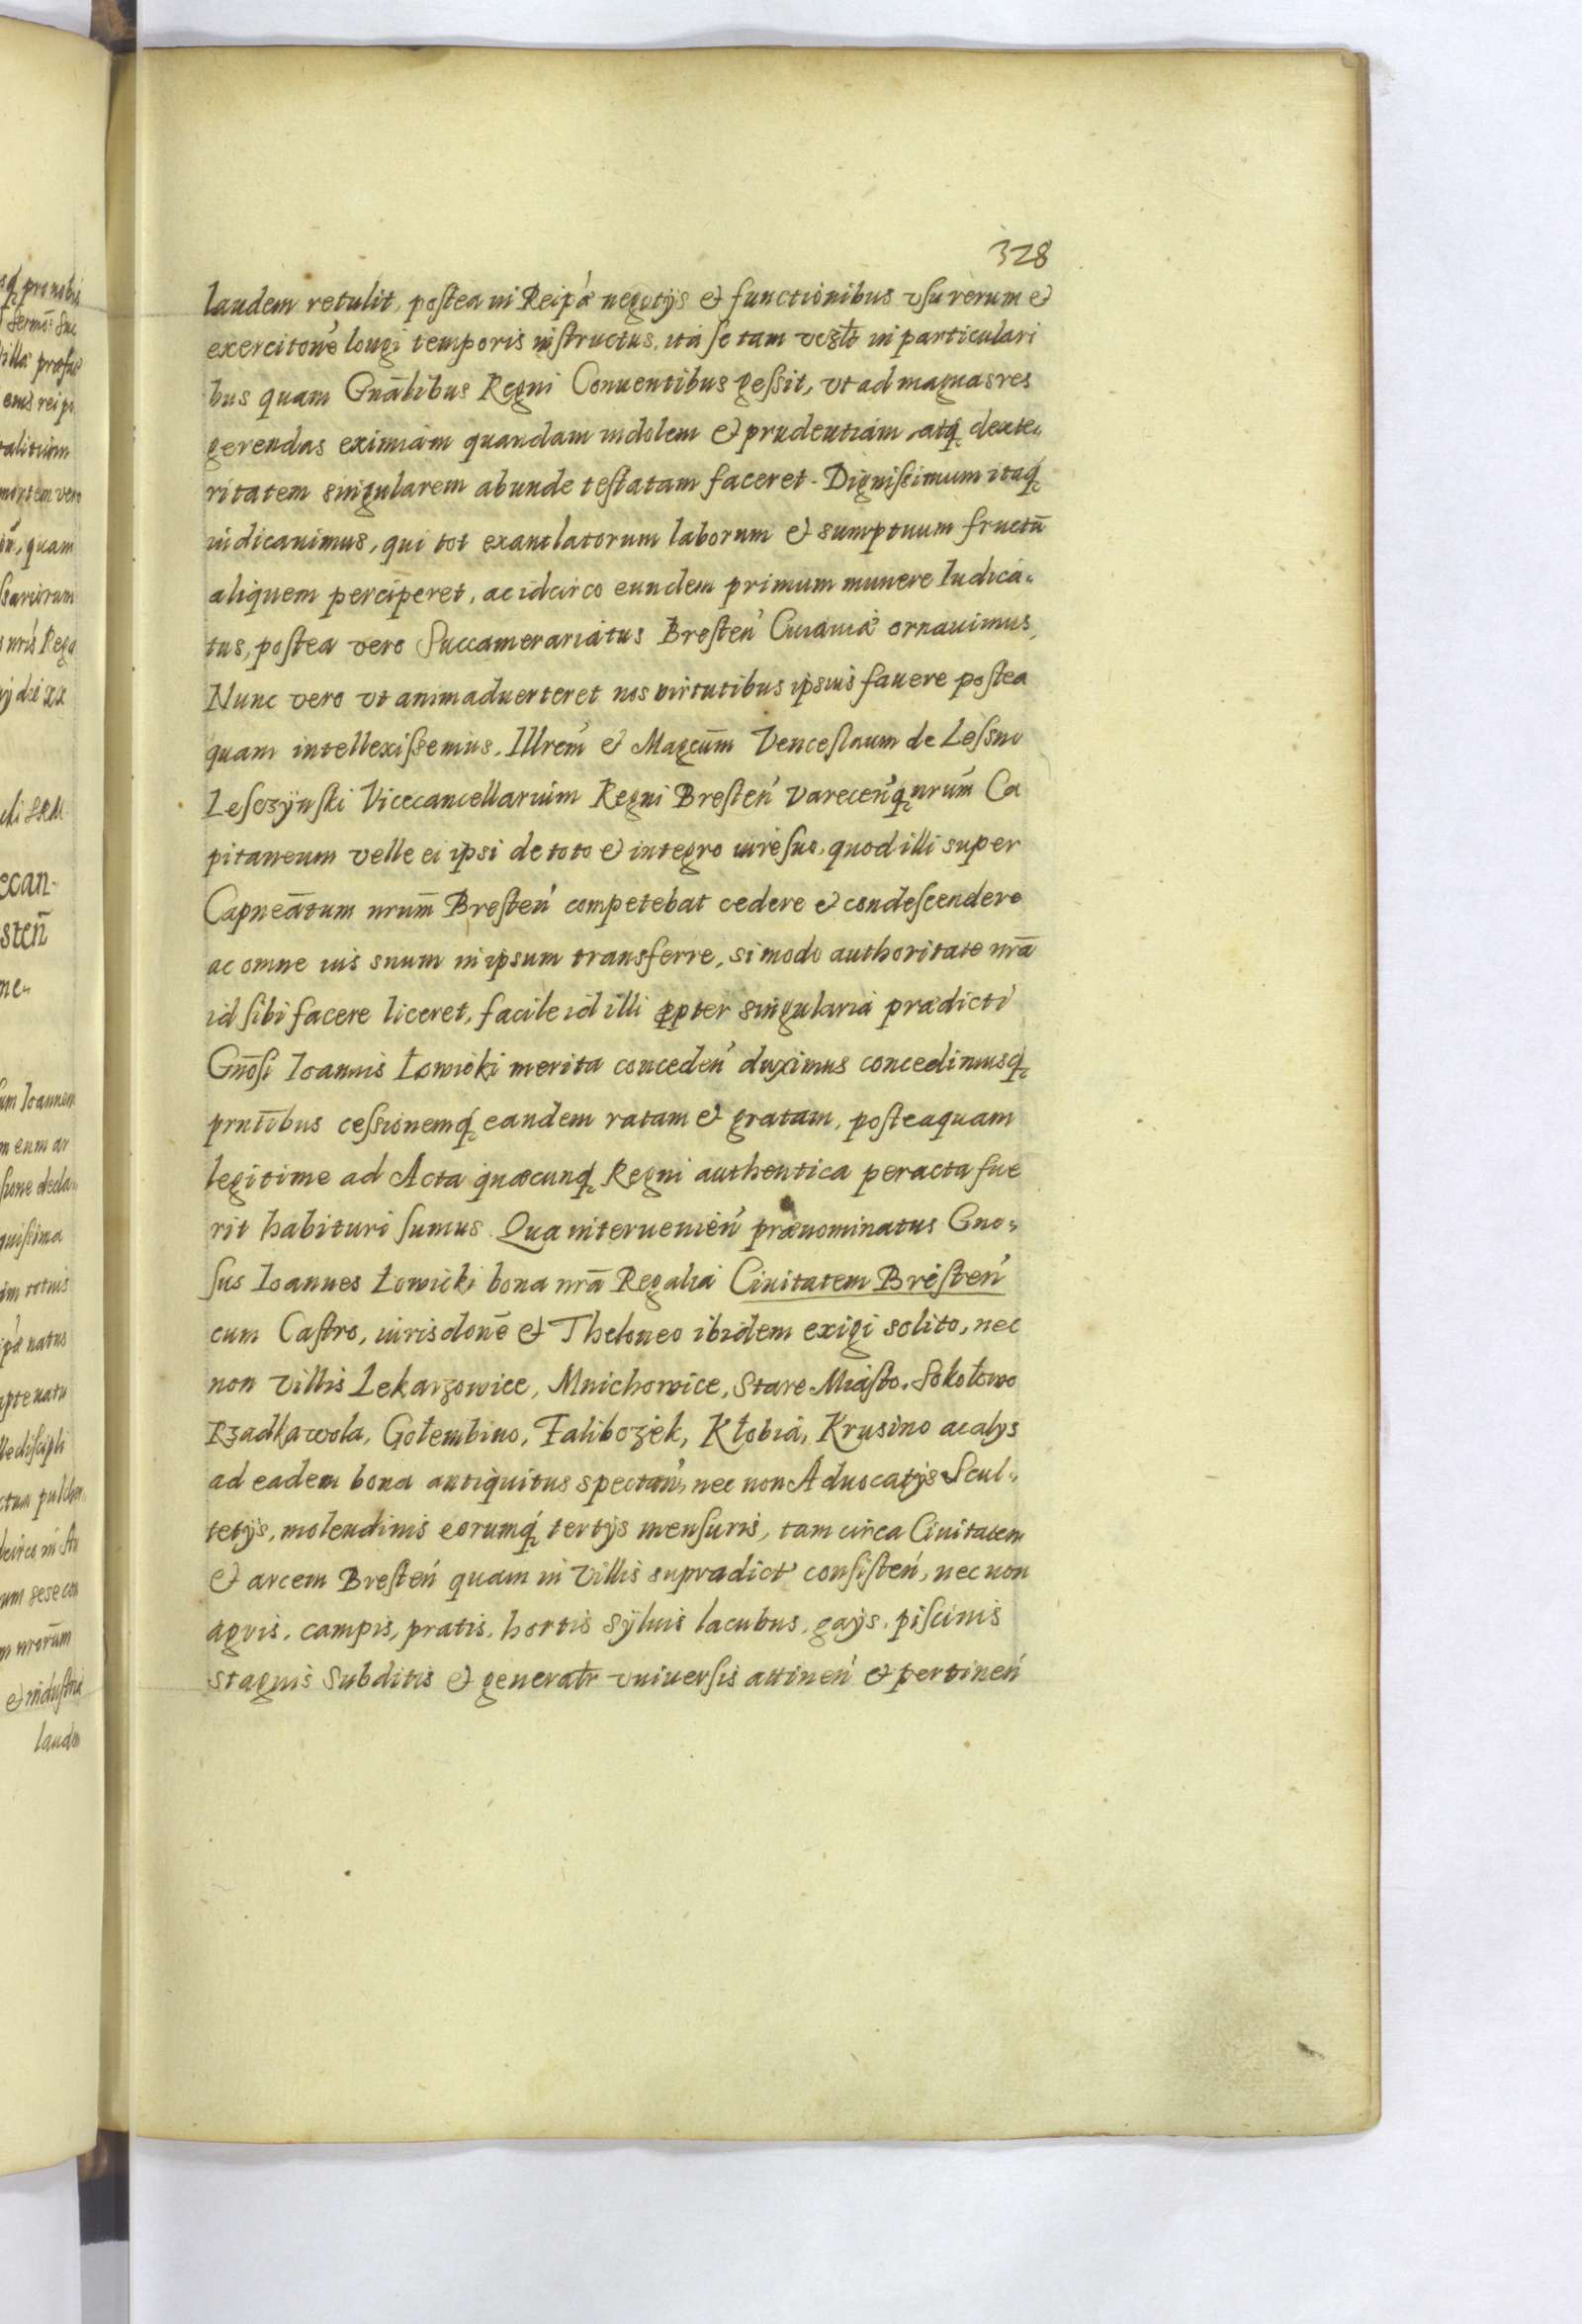 328
laudem retulit, postea in Reip: negotijs et functionibus vsu rerum et
exercitone longi temporis instructus, ita se tam in particulari
bus quam Gnālibus Regni Conuentibus gessit, vt ad magnas res
gerendas eximiam quandam indolem et prudentiam atq dexte„
ritatem singularem abunde testatam faceret. Dignissimum itaq
iudicauimus, qui tot exantlatorum laborum et sumptuum fructū
aliquem perciperet, ac idcirco eundem primum munere Iudica„
tus, postea vero Succamerariatus Bresten Cuiauiae ornauimus,
Nunc vero vt animaduerteret nos virtutibus ipsius fauere postea
quam intellexissemus, Illrem et Magcum Venceslaum de Lessno
Lesczynski Vicecancellarium Regni Bresten Varecenq nrum Ca
pitaneum velle ei ipsi de toto et integro iure suo, quod illi super
Capneātum nrum Bresten competebat cedere et condescendere
ac omne ius suum in ipsum transferre, si modo authoritate nrā
id sibi facere liceret, facile id illi ppter singularia praedicti
Gnosi Ioannis Łowicki merita conceden duximus concedimusq
prntibus cessionemq eandem ratam et gratam, posteaquam
legitime ad Acta quaecunq Regni authentica peracta fue
rit habituri sumus. Qua interuenien praenominatus Gno„
sus Ioannes Łowicki bona nrā Regalia Ciuitatem Bresten
cum Castro, iurisdone et Theloneo ibidem exigi solito, nec
non villis Lekarzowice, Mnichowice, Stare Miasto, Sokołowo
Rzadkawola, Gołembino, Falibozek, Kłobia, Krusino ac alys
ad eadem bona antiquitus spectan, nec non Aduocatijs Scul„
tetijs, molendinis eorumq tertijs mensuris, tam circa Ciuitatem
et arcem Bresten quam in villis supradict consisten, nec non
agris, campis, pratis, hortis syluis lacubus, gays, piscinis
stagnis subditis et generalr vniuersis attinen et pertinen